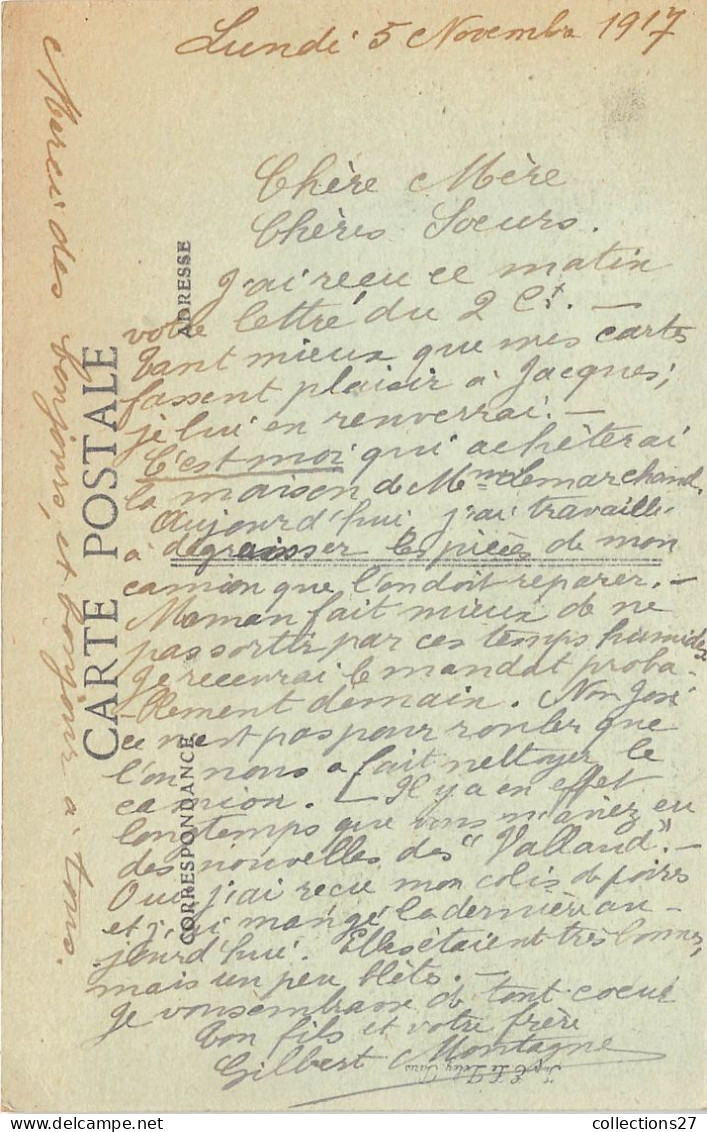 Lundi 5 Novembre 1917
Chère Mère
Chères Soeurs.
J'ai reçu ce matin
votre lettre du 2 Ct. —
Tant mieux que mes cartes
fassent plaisir à Jacques;
je lui en renverrai. —
C'est moi qui achèterai
la maison de Mme Lemarchand.
Aujourd'hui, j'ai travaillé
à dégraisser les pièces de mon
camion que l'on doit réparer. —
Maman fait mieux de ne
pas sortir par ces temps humides
Je recevrai le mandat proba-
-blement demain. Non José
ce n'est pas pour rouler que
l'on nous a fait nettoyer le
camion. — Il y a en effet
longtemps que vous n'aviez eu
des nouvelles des "Valland". —
Oui, j'ai reçu mon colis de poires
et j'ai mangé la dernière au-
jourd'hui. Elles étaient très bonnes,
mais un peu blêts. —
Je vous embrasse de tout coeur
Ton fils et votre frère
Gilbert Montagne
Merci des bonjours, et bonjour à tous.
CARTE POSTALE
ADRESSE
CORRESPONDANCE
collections27